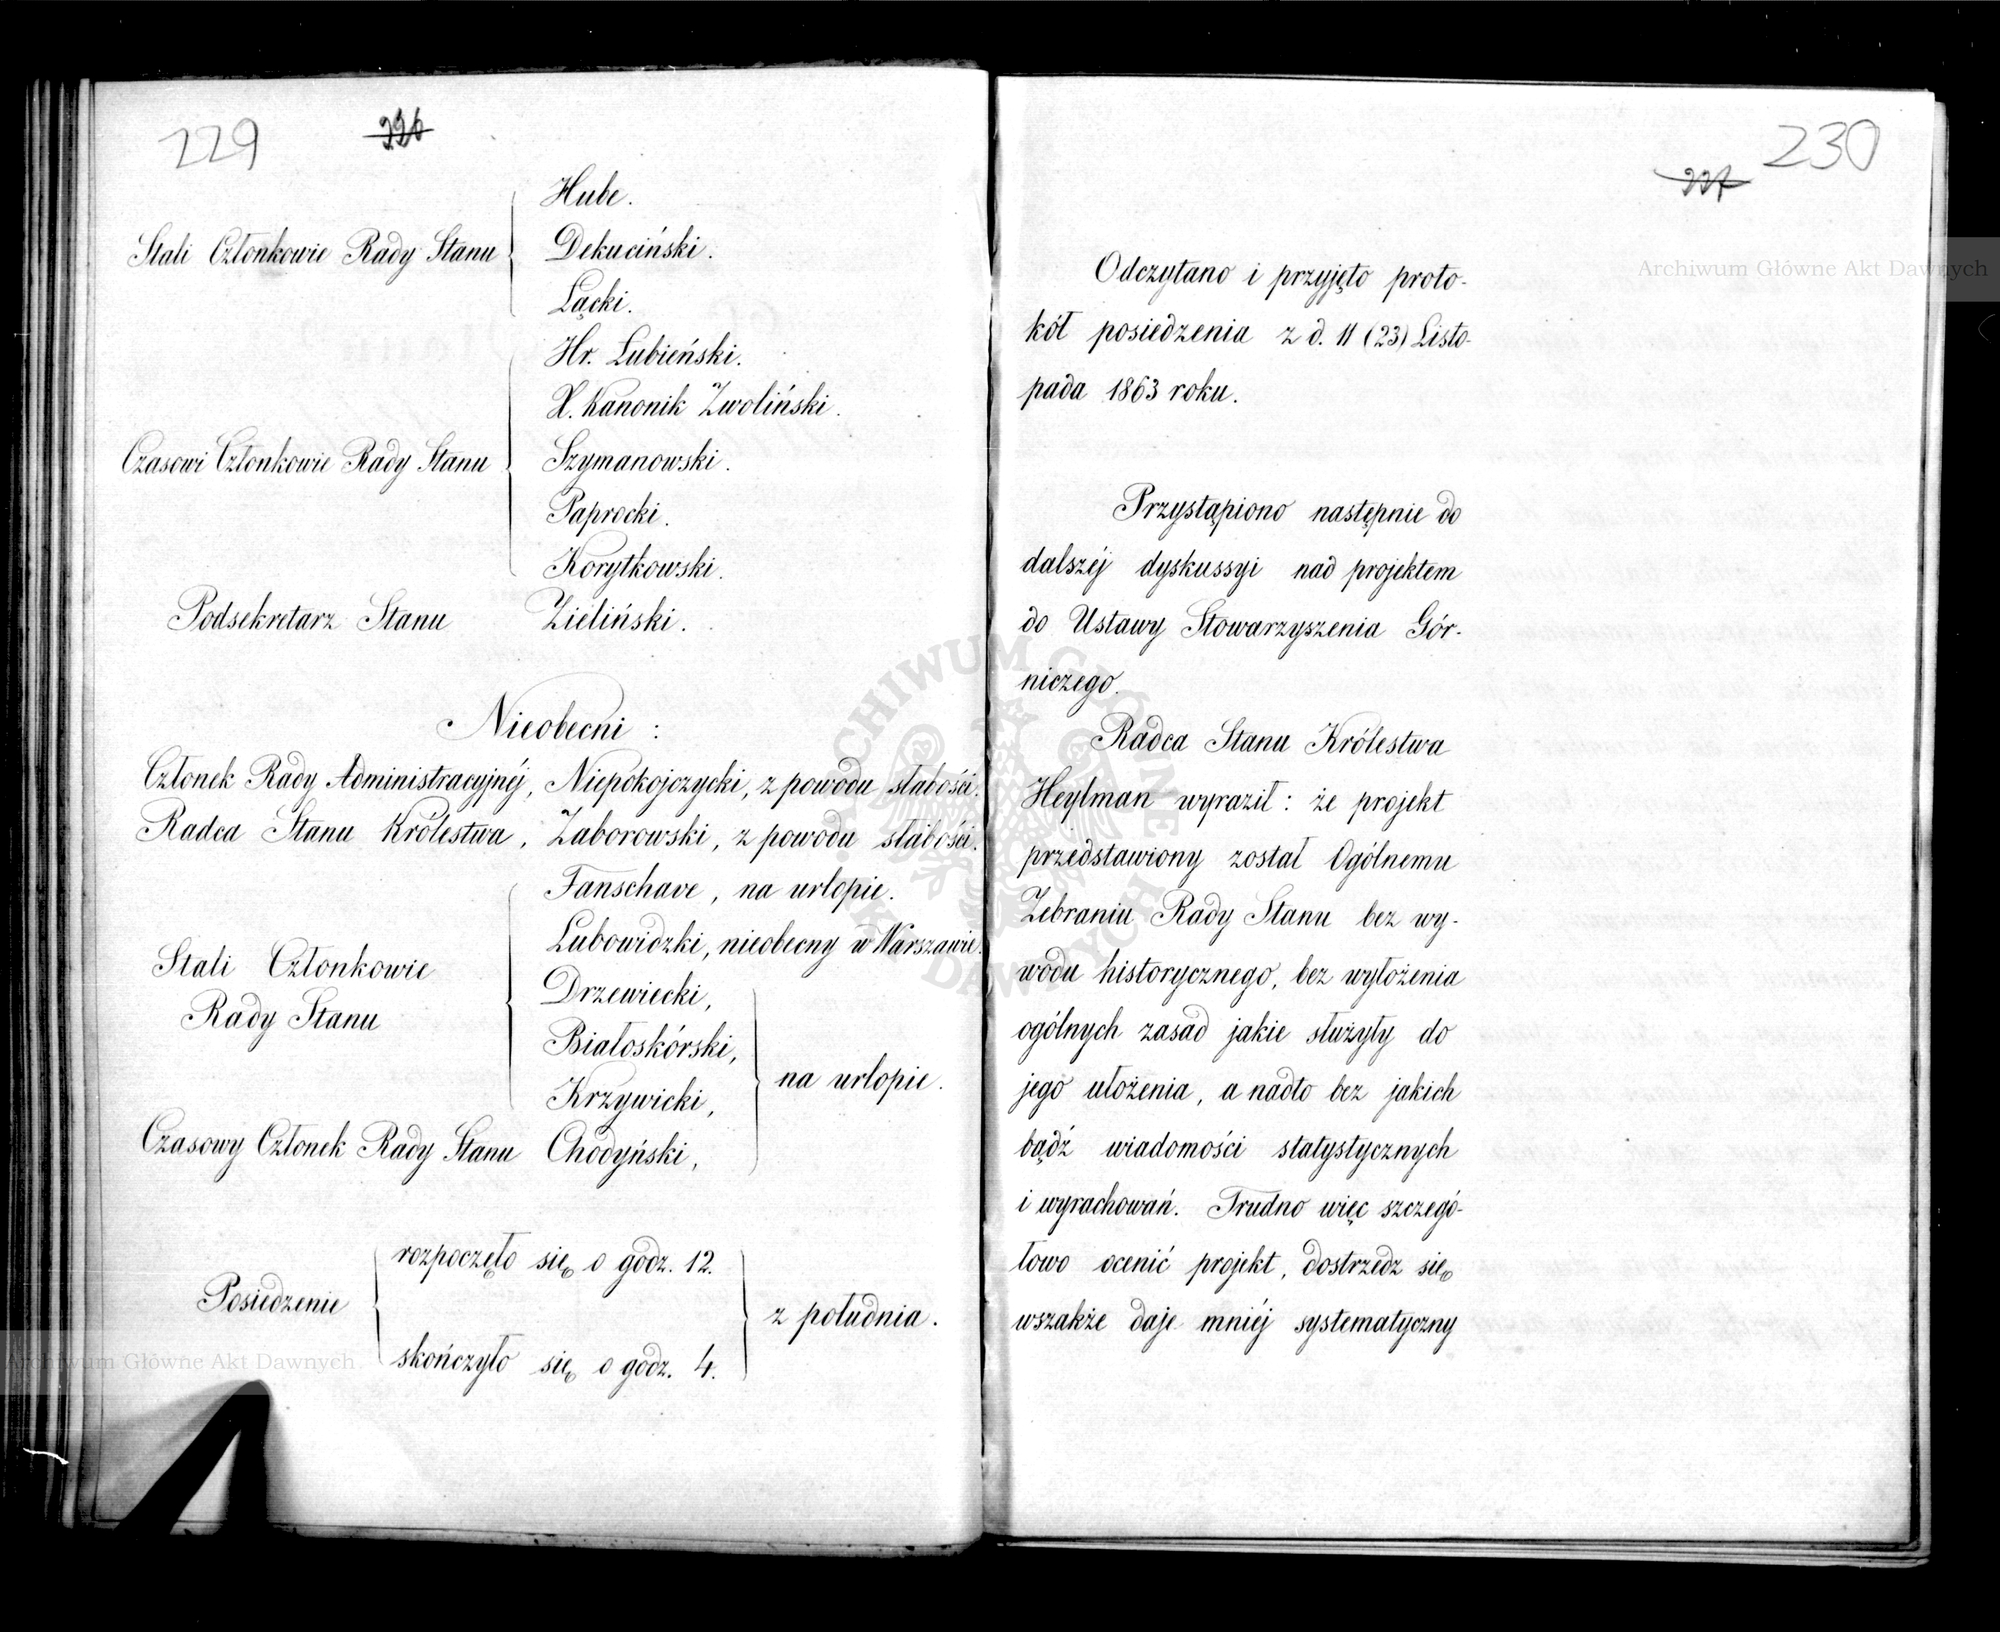 229
226
Hube.
Stali Członkowie Rady Stanu
Dekuciński.
Łącki.
Hr. Łubieński.
X. Kanonik Zwoliński.
Czasowi Członkowie Rady Stanu
Szymanowski.
Paprocki.
Korytkowski.
Podsekretarz Stanu Zieliński.
Nieobecni :
Członek Rady Administracyjnéj, Niepokojczycki, z powodu słabości.
Radca Stanu Królestwa, Zaborowski, z powodu słabości.
Fanschave, na urlopie.
Łubowidzki, nieobecny w Warszawie.
Stali Członkowie
Rady Stanu
Drzewiecki,
Białoskórski,
Krzywicki,
na urlopie.
Czasowy Członek Rady Stanu Chodyński,
Posiedzenie
rozpoczęło się o godz. 12.
skończyło się o godz. 4.
z południa.
Archiwum Główne Akt Dawnych
230
227
Archiwum Główne Akt Dawnych
Odczytano i przyjęto proto-
kół posiedzenia z d. 11 (23) Listo-
pada 1863 roku.
Przystąpiono następnie do
dalszéj dyskussyi nad projektem
do Ustawy Stowarzyszenia Gór-
niczego.
Radca Stanu Królestwa
Heylman wyraził: że projekt
przedstawiony został Ogólnemu
Zebraniu Rady Stanu bez wy-
wodu historycznego, bez wyłożenia
ogólnych zasad jakie służyły do
jego ułożenia, a nadto bez jakich
bądź wiadomości statystycznych
i wyrachowań. Trudno więc szczegó-
łowo ocenić projekt, dostrzedz się
wszakże daje mniéj systematyczny
ARCHIWUM GŁÓWNE AKT DAWNYCH